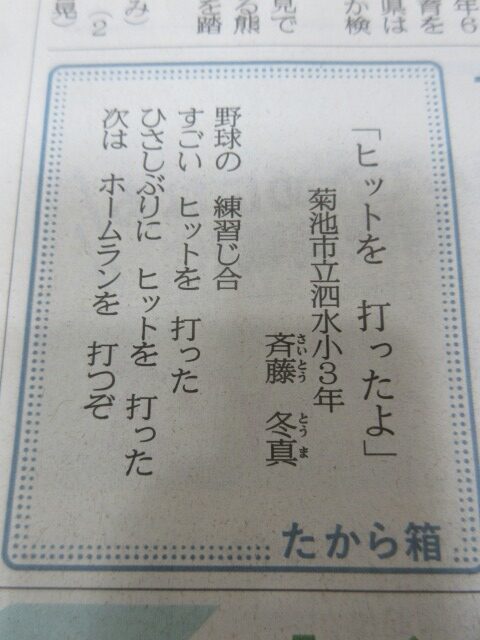 「ヒットを　打ったよ」
菊池市立泗水小3年
斉藤　冬真
さいとう　とうま
野球の　練習じ合
すごい　ヒットを　打った
ひさしぶりに　ヒットを　打った
次は　ホームランを　打つぞ
たから箱
年6
育を
県は
か検
見で
る熊
を踏
み）
（2